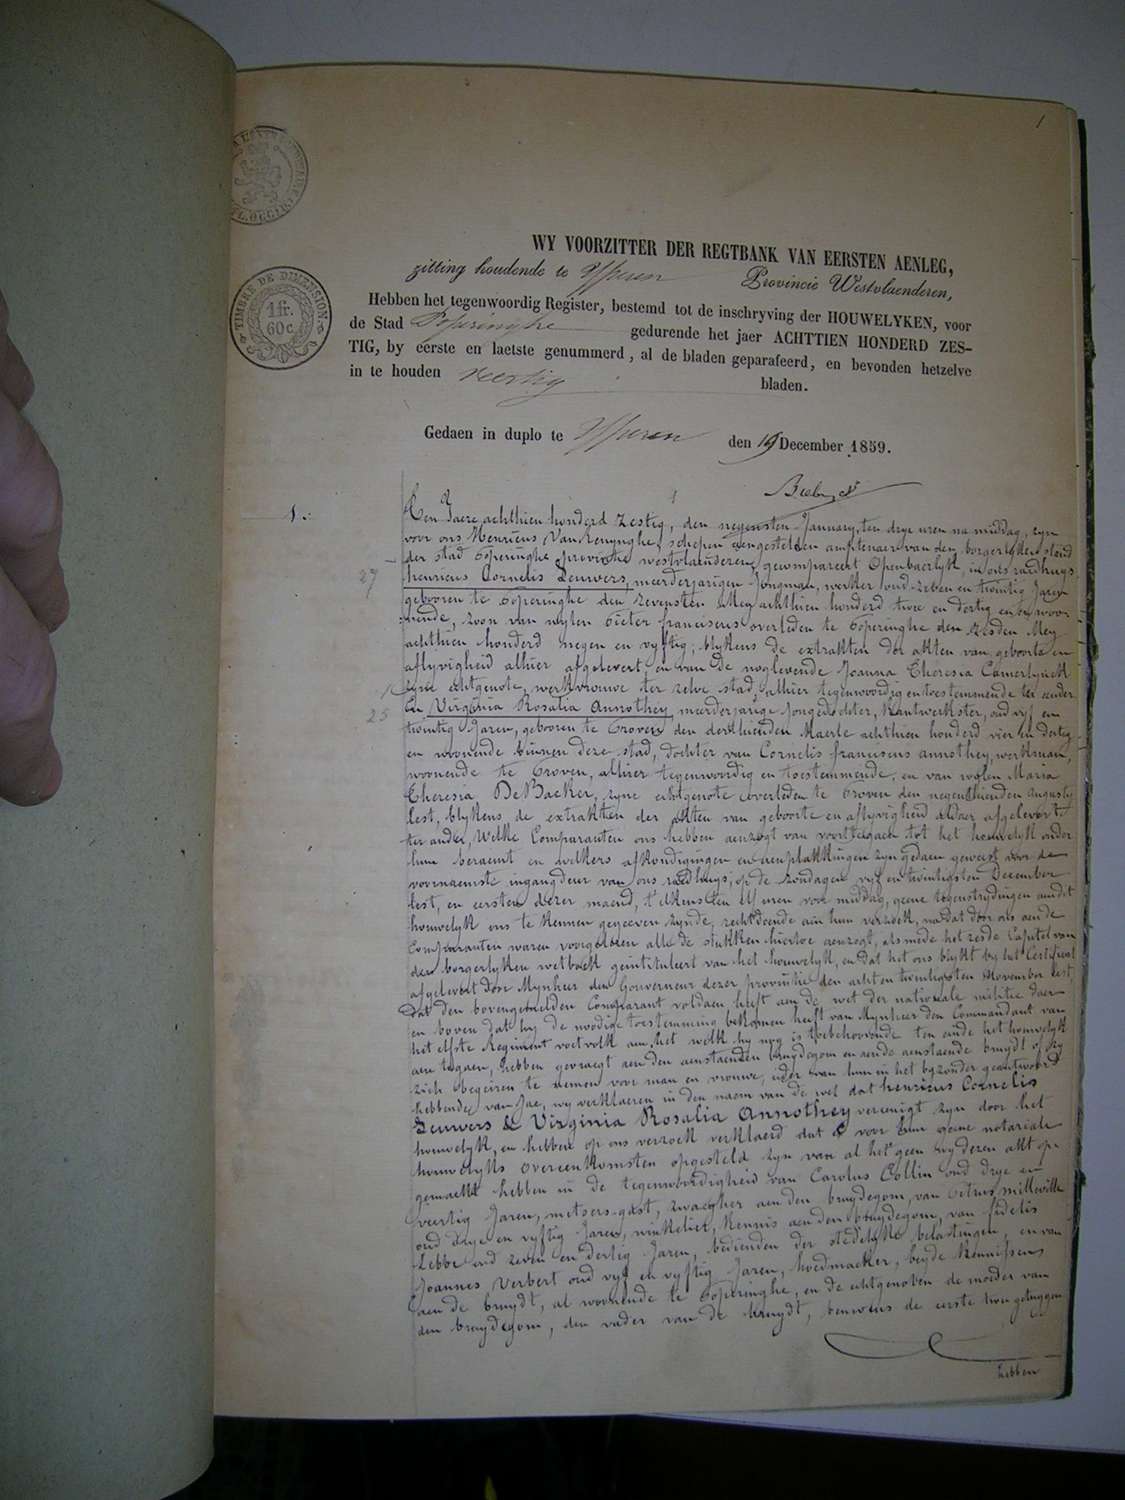 1
TIMBRE DE DIMENSION
1 fr.
60 c.
WY VOORZITTER DER REGTBANK VAN EERSTEN AENLEG,
zitting houdende te Yperen Provincie Westvlaenderen,
Hebben het tegenwoordig Register, bestemd tot de inschryving der HOUWELYKEN, voor
de Stad Poperinghe gedurende het jaer ACHTTIEN HONDERD ZES-
TIG, by eerste en laetste genummerd, al de bladen geparafeerd, en bevonden hetzelve
in te houden veertig bladen.
Gedaen in duplo te Yperen den 19 December 1859.
1.
Ten Jaere achthien honderd zestig, den negensten January, ten drye uren na middag, zyn
voor ons Henricus Van Renynghe, schepen aengestelden amptenaer van den borgerlyken stand
der stad Poperinghe provincie westvlaenderen, gecompareert Openbaerlyk, in ons raedhuys
27
henricus Cornelis Leuwers, meerderjarigen Jongman, werker oud zeven en twintig Jaren
gebooren te Poperinghe den zevensten Mey achthien honderd twee en dertig en er woo-
nende, zoon van wylen Pieter franciscus overleden te Poperinghe den zesden Mey
achthien honderd negen en vyftig; blykens de extrakten der akten van geboorte en
aflyvigheid alhier afgelevert en van de noglevende Joanna Theresia Camerlynck
zyne echtgenote, werkvrouwe ter zelve stad, alhier tegenwoordig en toestemmende ter eender
25
En Virginia Rosalia Annothey, meerderjarige Jongedochter, Kantwerkster, oud vyf en
twintig Jaren, gebooren te Proven den derthienden Maerte achthien honderd vier en dertig
en woonende binnen deze stad, dochter van Cornelis franciscus annothey, werkman,
woonende te Proven, alhier tegenwoordig en toestemmende, en van wylen Maria
Theresia DeBacker, zyne echtgenote overleden te Proven den negenthienden Augusty
lest, blykens de extrakten der akten van geboorte en aflyvigheid aldaer afgelevert
ter ander, Welke Comparanten ons hebben aenzogt van voortegaen tot het houwelyk onder
hun beraemt en welkers afkondigingen en aenplakkingen zyn gedaen geweest voor de
voornaemste ingangdeur van ons raedhuys, op de zondagen vyf en twintigsten December
lest, en eersten dezer maend, t'elkens ten elf uren voor middag, geene tegenstrydingen aen dit
houwelyk ons te kennen gegeeven zynde, rechtdoende aen hun verzoek, na dat door ons aen de
Comparanten waren voorgelezen alle de stukken hiertoe aenzogt, als mede het zesde Capitel van
den borgerlyken wetboek geintituleert van het houwelyk, en dat het ons blykt by het Certificaet
afgelevert door Mynheer den Gouverneur dezer provintie den acht en twintigsten November lest,
Dat den bovengemelden Comparant voldaen heeft aen de wet der nationale militie daer
en boven dat hy de nodige toestemming bekomen heeft van Mynheer den Commandant van
het elfste Regiment voetvolk aen het welk hy nog is toebehoorende ten einde het houwelyk
aen tegaen, hebben gevraegt aen den aenstaenden bruydegom en aende aenstaende bruydt of zy
zich begeiren te nemen voor man en vrouwe, ieder van hun in het byzonder geantwoord
hebbende van Jae, wy verklaeren in den naem van de wet dat henricus Cornelis
Leuwers & Virginia Rosalia Annothey vereenigt zyn door het
houwelyk, en hebben op ons verzoek verklaerd dat er voor hun geene notariale
houwelyks overeenkomsten opgesteld zyn van al het geen wy dezen akt op-
gemaekt hebben in de tegenwoordigheid van Carolus Collin oud drye en
veertig Jaren, metsers-gast, zwaegher aen den bruydegom, van Petrus milleville
oud drye en vyftig Jaren, winkelier, Kennis aen den bruydegom, van fidelis
Lebbe oud zeven en dertig Jaren, bedienden der stedelyke belastingen, en van
Joannes Verbert oud vyf en vyftig Jaren, hoedmaeker, beyde Kennissens
aen de bruydt, al woonende te Poperinghe, en de echtgenoten de moeder van
den bruydegom, den vader van de bruydt, benevens de eerste twee getuygen
hebben